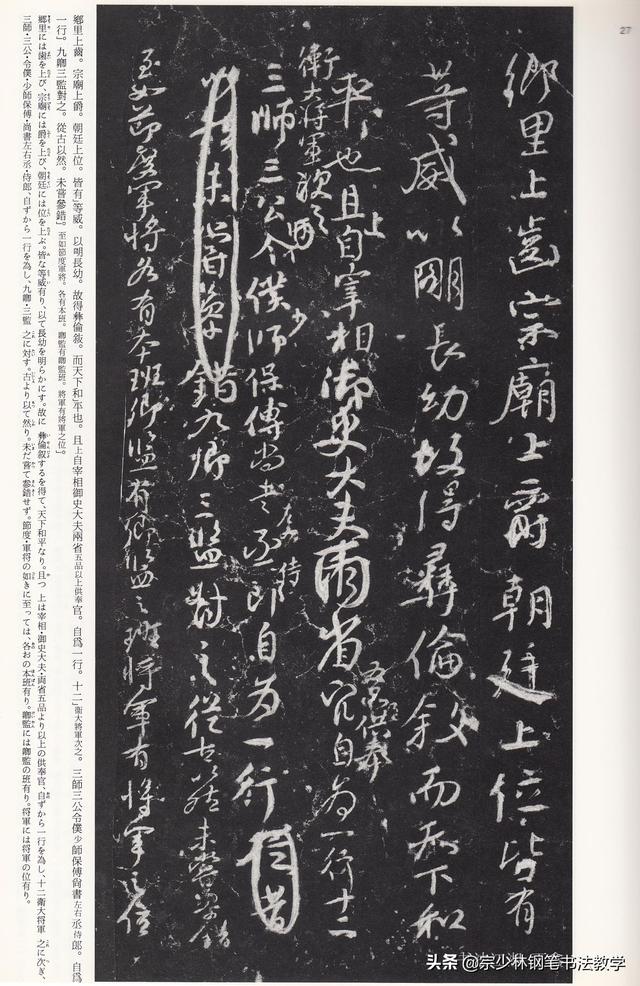 27
鄉里上齒宗廟上爵朝廷上位皆有
等威以明長幼故得彝倫敘而天下和
平也且上自宰相御史大夫兩省五品供奉官自為一行十二
衛大將軍次之
三師三公令僕少師保傅尚書左右丞侍郎自為一行
錯九卿三監對之從古以然未嘗參錯
至如節度軍將各有本班卿監有卿監之班將軍有將軍之位
鄉里上齒。宗廟上爵。朝廷上位。皆有」等威。以明長幼。故得彝倫敍。而天下和」平也。且上自宰相御史大夫兩省五品以上供奉官。自爲一行。十二」衛大將軍次之。三師三公令僕少師保傅尙書左右丞侍郎。自爲
一行」。九卿三監對之。從古以然。未嘗參錯」。至如節度軍將。各有本班。卿監有卿監班。將軍有將軍之位」。
鄉里には歯を上び、宗廟には爵を上び、朝廷には位を上ぶ。皆な等威有り、以て長幼を明らかにす。故に彝倫叙するを得て、天下和平なり。且つ上は宰相・御史大夫・両省五品より以上の供奉官、自ずから一行を為し、十二衛大将軍之に次ぎ、
三師・三公・令僕・少師保傅・尚書左右丞・侍郎、自ずから一行を為し、九卿・三監之に対す。古より以て然り。未だ嘗て参錯せず。節度・軍将の如きに至っては、各おの本班有り。卿監には卿監の班有り。将軍には将軍の位有り。
头条 @宗少林钢笔书法教学